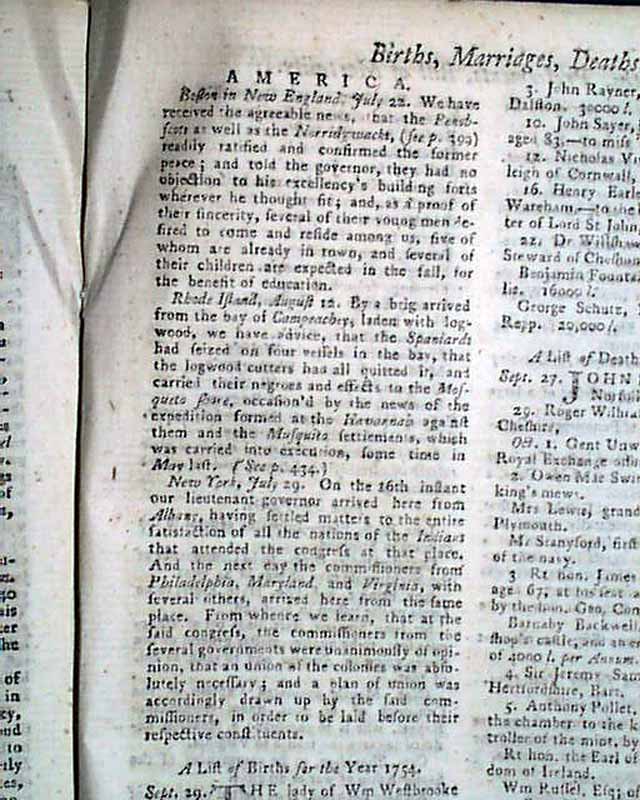 Births, Marriages, Deaths
AMERICA.
Boston in New England, July 22. We have
received the agreeable news, that the Penob-
scots as well as the Norridgwacks, (see p. 399)
readily ratified and confirmed the former
peace; and told the governor, they had no
objection to his excellency's building forts
wherever he thought fit; and, as a proof of
their sincerity, several of their young men de-
sired to come and reside among us, five of
whom are already in town, and several of
their children are expected in the fall, for
the benefit of education.
Rhode Island, August 12. By a brig arrived
from the bay of Campeachey, laden with log-
wood, we have advice, that the Spaniards
had seized on four vessels in the bay, that
the logwood cutters had all quitted it, and
carried their negroes and effects to the Mos-
queto shore, occasion'd by the news of the
expedition formed at the Havannah against
them and the Musquito settlements, which
was carried into execution, some time in
May last. (See p. 434.)
New York, July 29. On the 16th instant
our lieutenant governor arrived here from
Albany, having settled matters to the entire
satisfaction of all the nations of the Indians
that attended the congress at that place.
And the next day the commissioners from
Philadelphia, Maryland, and Virginia, with
several others, arrived here from the same
place. From whence we learn, that at the
said congress, the commissioners from the
several governments were unanimously of opi-
nion, that an union of the colonies was abso-
lutely necessary; and a plan of union was
accordingly drawn up by the said com-
missioners, in order to be laid before their
respective constituents.
A List of Births for the Year 1754.
Sept. 29. THE lady of Wm Westbrooke
3. John Rayner,
Dalston. 30000 l.
10. John Sayer,
aged 83,—to miss
12. Nicholas
leigh of Cornwall,
16. Henry Earle
Wareham,—to the
ter of Lord St John,
22. Dr
Steward of
Benjamin
16000 l.
George Schutz,
Repp. 20,000 l.
A List of Death
Sept. 27. JOHN
Norfolk
29. Roger
Cheshire,
Oct. 1. Gent
Royal Exchange
2. Owen Mac Swin
king's mews.
Mrs Lewis, grand
Plymouth.
Mr Stanyford, first
of the navy.
3 Rt hon. James
age 67, at his seat
by the hon. Geo. Com
Barnaby Backwell,
shop's castle, and
of 4000 l. per Annum
4. Sir Jeremy Sam
Hertfordshire, Bart.
5. Anthony Pollet,
the chamber to the k
troller of the mint, by
Rt hon. the Earl of
dom of Ireland.
Wm Russel,